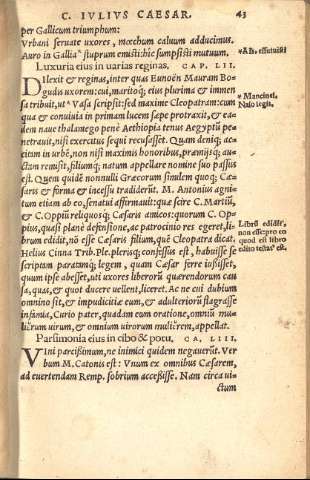 C. IVLIVS CAESAR. 43
per Gallicum triumphum:
Vrbani seruate uxores, mœchum caluum adducimus.
Auro in Gallia stuprum emisti: hic sumpsisti mutuum.
Luxuria eius in uarias reginas. CAP. LII.
Dilexit & reginas, inter quas Eunoën Mauram Bo-
gudis uxorem: cui, maritoq; eius plurima & immen
sa tribuit, ut Vasa scripsit: sed maxime Cleopatram: cum
qua & conuiuia in primam lucem sæpe protraxit, & ea-
dem naue thalamego penè Aethiopia tenus Aegyptũ pe-
netrauit, nisi exercitus sequi recusasset. Quam deniq; ac-
citam in urbē, non nisi maximis honoribus, præmijsq; au-
ctam remisit, filiumq; natum appellare nomine suo passus
est. Quem quidē nonnulli Græcorum similem quoq; Cæ-
saris & forma & incessu tradiderũt. M. Antonius agni-
tum etiam ab eo, senatui affirmauit: quæ scire C. Martiũ,
& C. Oppiũ reliquosq; Cæsaris amicos: quorum C. Op-
pius, quasi planè defensione, ac patrocinio res egeret, li-
brum edidit, nō esse Cæsaris filium, quē Cleopatra dicat.
Heluius Cinna Trib. Ple. plerisq; confessus est, habuisse se
scriptam paratamq; legem, quam Cæsar ferre iussisset,
quum ipse abesset, uti uxores liberorũ quærendorum cau-
sa, quas, & quot ducere uellent, liceret. Ac ne cui dubium
omnino sit, & impudicitiæ eum, & adulteriorũ flagrasse
infamia, Curio pater, quadam eum oratione, omniũ mu-
lierũ uirum, & omnium uirorum mulierē, appellat.
Parsimonia eius in cibo & potu. CA. LIII.
Vini parcissimum, ne inimici quidem negauerũt. Ver
bum M. Catonis est: Vnum ex omnibus Cæsarem,
ad euertendam Remp. sobrium accessisse. Nam circa ui-
ctum
Als, effutuisti
Mancinus.
Naso legis.
Librũ edidit,
non esse pro eo
quod est libro
edito testatus est.